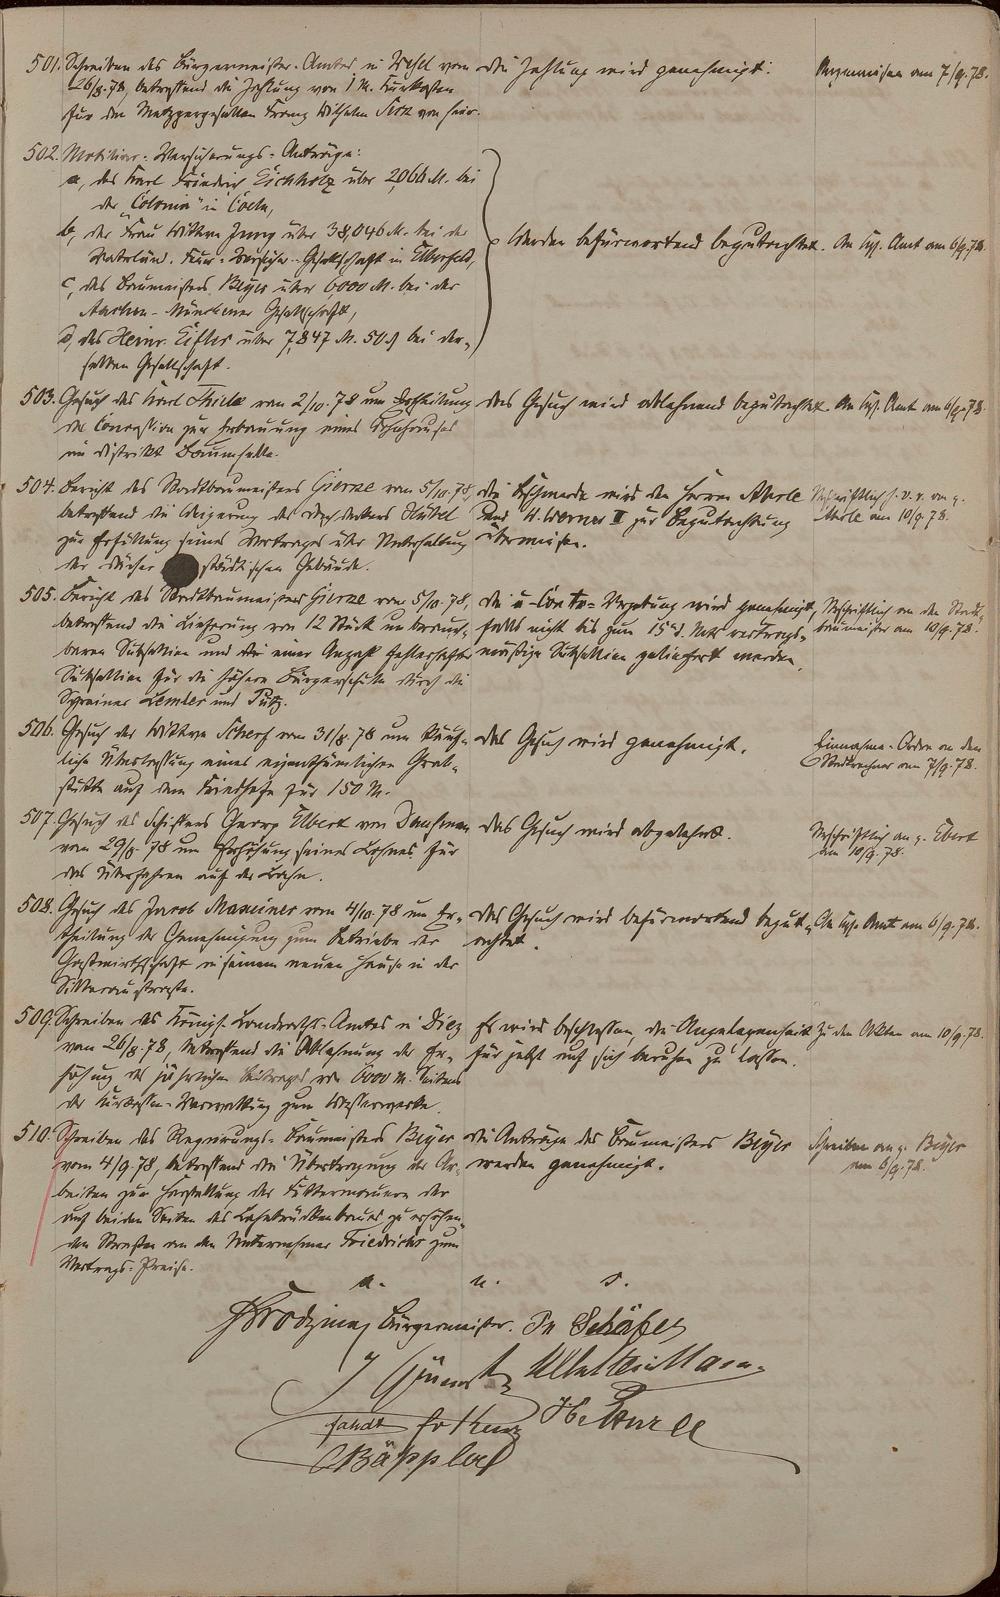 501. Schreiben des Bürgermeister-Amtes in Wesel vom
26/8. 78, betreffend die Zahlung von 1 M. Kurkosten
für den Metzgergesellen Franz Wilhelm von hier.
Die Zahlung wird genehmigt.
Angewiesen am 7/9. 78.
502. Mobiliar-Versicherungs-Anträge:
a, des Karl Friedrich Eichholz über 2,066 M. bei
der "Colonia" in Coeln,
b, der Frau Wittwe Jung über 38,046 M. bei der
Vaterländ. Feuer-Versicher.-Gesellschaft in Elberfeld,
c, des Baumeisters Beyer über 6,000 M. bei der
Aachen-Münchener Gesellschaft,
d, des Heinr. Eifler über 7,847 M. 50 ₰ bei der-
selben Gesellschaft.
Werden befürwortend begutachtet.
An Kgl. Amt am 6/9. 78.
503. Gesuch des Karl Thiele vom 2/10. 78 um Ertheilung
der Concession zur Erbauung eines Wohnhauses
im Distrikt
Das Gesuch wird ablehnend begutachtet.
An Kgl. Amt am 6/9. 78.
504. Bericht des Stadtbaumeisters Gierse vom 5/10. 78,
betreffend die Weigerung des Dachdeckers
zur Erfüllung seines Vertrages über Unterhaltung
der Dächer städtischen Gebäude.
Die Beschwerde wird den Herren
und W. Werner II zur Begutachtung
überwiesen.
am 10/9. 78.
505. Bericht des Stadtbaumeisters Gierse vom 5/10. 78,
betreffend die Lieferung von 12 Stück unbrauch-
baren Subsellien und einer Anzahl fehlerhafter
Subsellien für die höhere Bürgerschule durch die
Schreiner und
Die à Conto-Vergebung wird genehmigt,
falls nicht bis zum 15 d. Mts vertrags-
mäßige Subsellien geliefert werden.
Abschriftlich an den Stadt-
baumeister am 10/9. 78.
506. Gesuch der Wittwe Scherf vom 31/8. 78 um käuf-
liche Überlassung einer eigenthümlichen Grab-
stätte auf dem Friedhofe für 150 M.
Das Gesuch wird genehmigt.
Einnahme-Order an den
Stadtrechner am 7/9. 78.
507. Gesuch des Schiffers Georg Elbert von
vom 29/8. 78 um Erhöhung seines Lohnes für
das Überfahren auf der Lahn.
Das Gesuch wird abgelehnt.
Abschriftlich an p. Ebert
am 10/9. 78.
508. Gesuch des Jacob vom 4/10. 78 um Er-
theilung der Genehmigung zum Betriebe der
Gastwirthschaft in seinem neuen Hause in der
Das Gesuch wird befürwortend begut-
achtet.
An Kgl. Amt am 6/9. 78.
509. Schreiben des Königl. Landraths-Amtes in Diez
vom 26/8. 78, betreffend die Ablehnung der Er-
höhung des jährlichen Beitrages von 6000 M. Seitens
der Kurkassen-Verwaltung zum Wasserwerke.
Es wird beschlossen, die Angelegenheit
für jetzt auf sich beruhen zu lassen.
Zu den Akten am 10/9. 78.
510. Schreiben des Regierungs-Baumeisters Beyer
vom 4/9. 78, betreffend die Übertragung der Ar-
beiten zur Herstellung der Futtermauern der
auf beiden Seiten des Lahnbrückenbaues zu erhöhen-
den Straßen an den Unternehmer Friedrichs zum
Vertrags-Preise.
Die Anträge des Baumeisters Beyer
werden genehmigt.
Schreiben an p. Beyer
am 6/9. 78.
a. u. s.
Bürgermeister. Schäfer